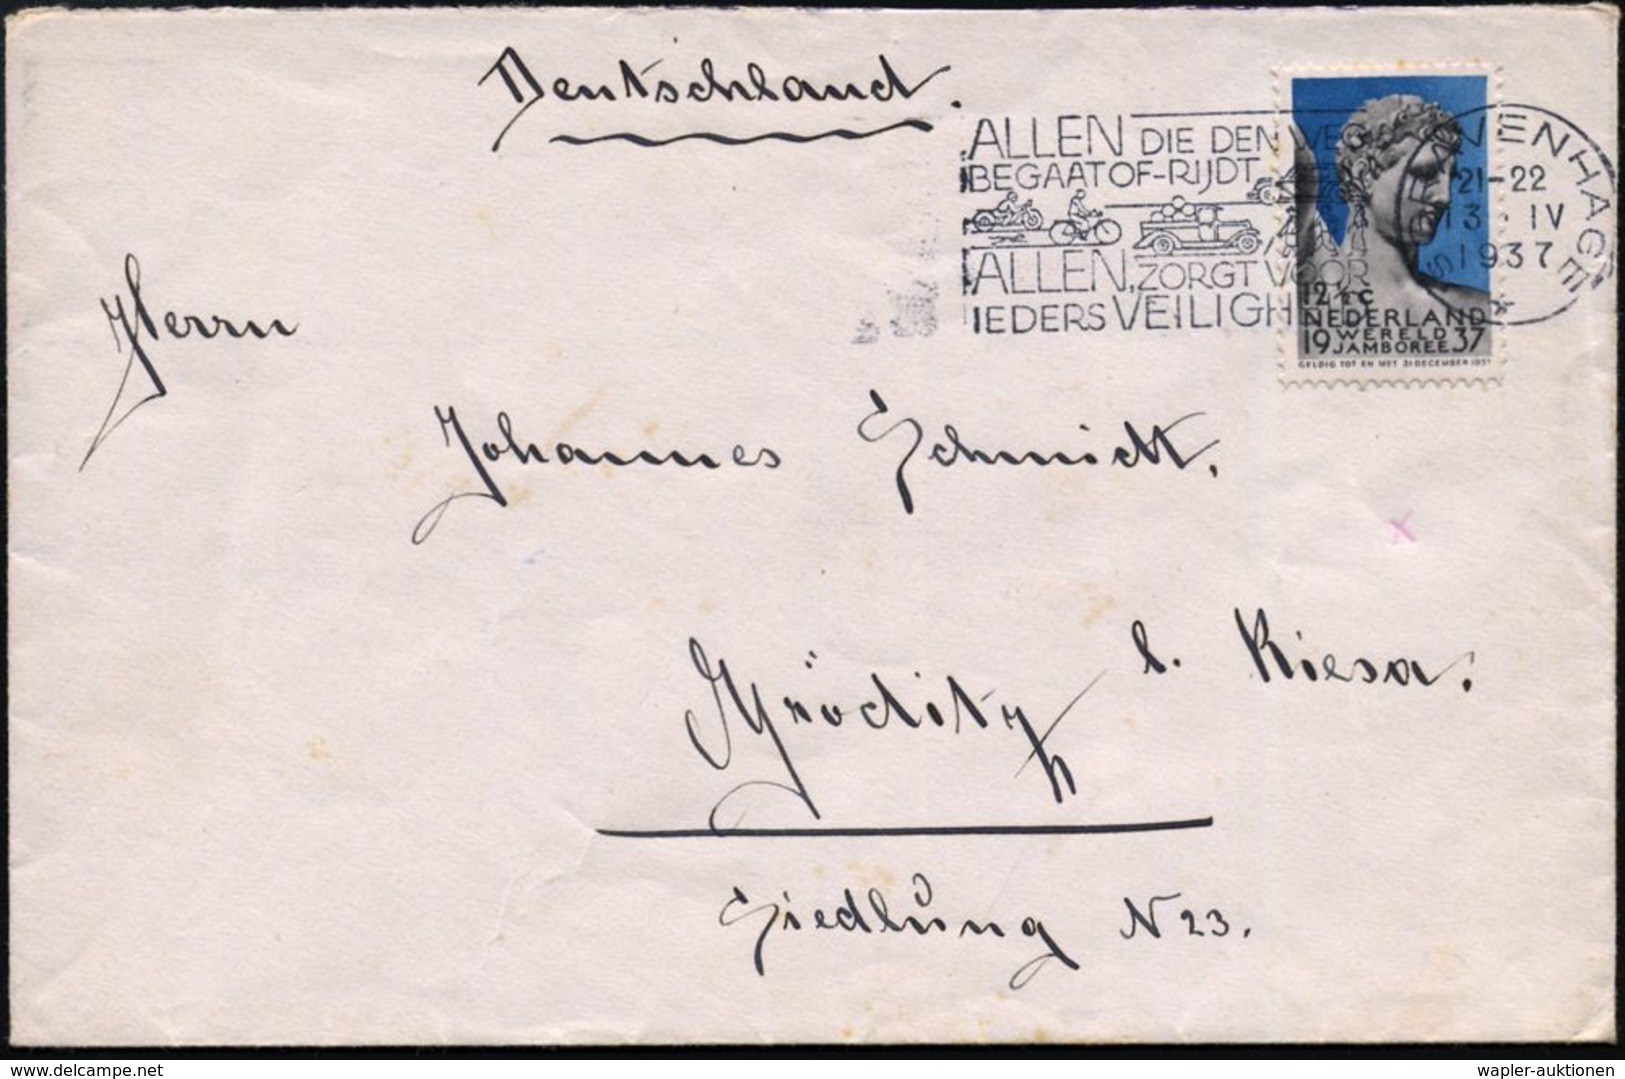 Deutschland.
ALLEN DIE DEN WEG
BEGAAT OF-RIJDT
ALLEN, ZORGT VOOR
IEDERS VEILIGH
'S GRAVENHAGE
21-22
13 · IV
1937
12½C
NEDERLAND
19 WERELD 37
JAMBOREE
GELDIG TOT EN MET 31 DECEMBER 1937
Herrn
Johannes Schmidt.
Gröditz b. Riesa.
Siedlung N 23.
My ebay. delcampe.net
wapler-auktionen